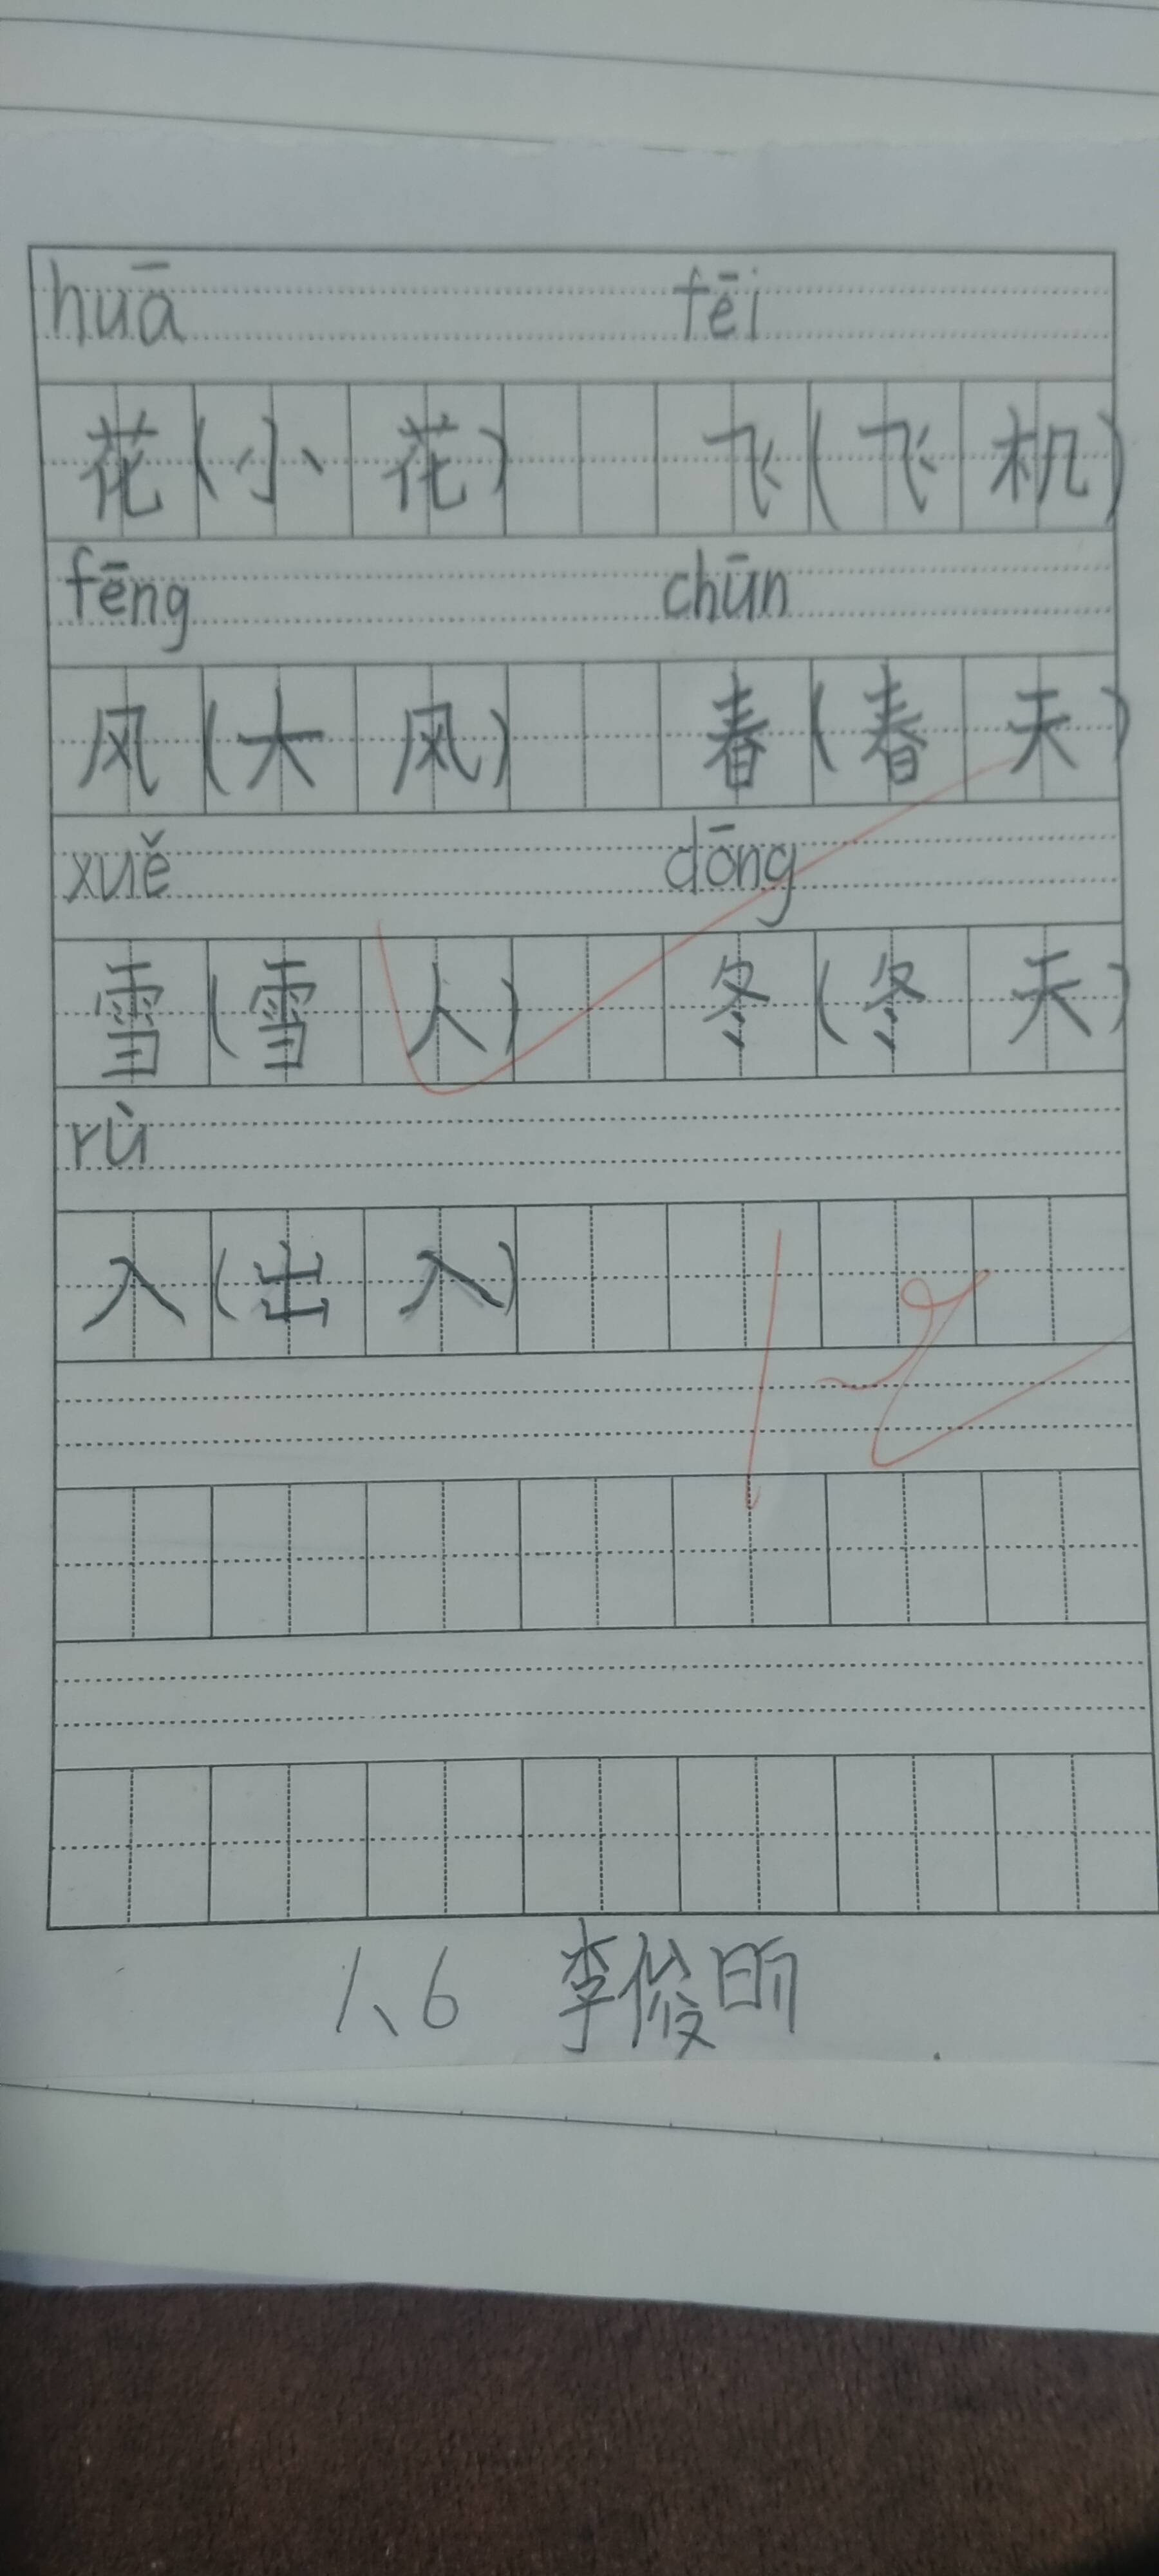 huā fēi
花(小花) 飞(飞机)
fēng chūn
风(大风) 春(春天)
xuě dōng
雪(雪人) 冬(冬天)
rù
入(出入)
1、6 李俊昕